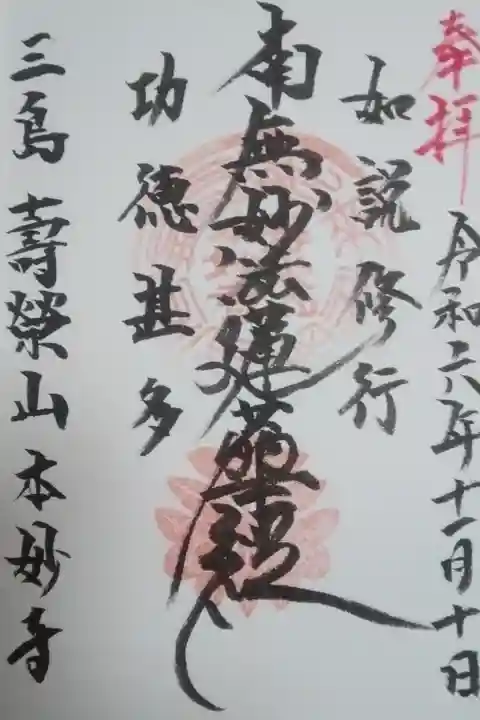 奉拝
令和六年十一月十日
如説修行
南無妙法蓮華経
功徳甚多
三島 壽榮山 本妙寺